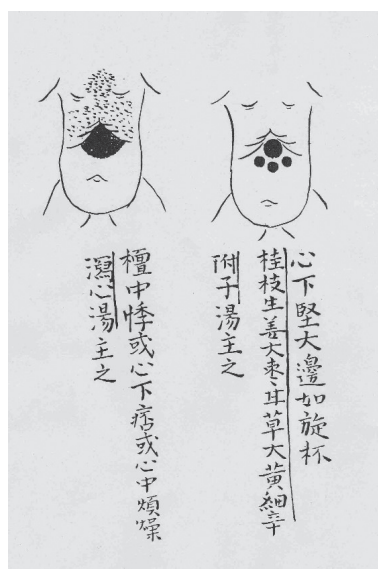 心下堅大邊如旋杯
桂枝生姜大棗甘草大黃細辛
附子湯主之
檀中悸或心下痞或心中煩燥
瀉心湯主之